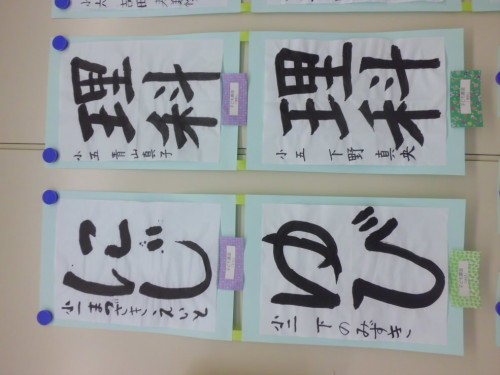 理科
小五 青山真子
理科
小五 下野真央
にじ
小一 まつざきえいと
ゆび
小二 下のみずき